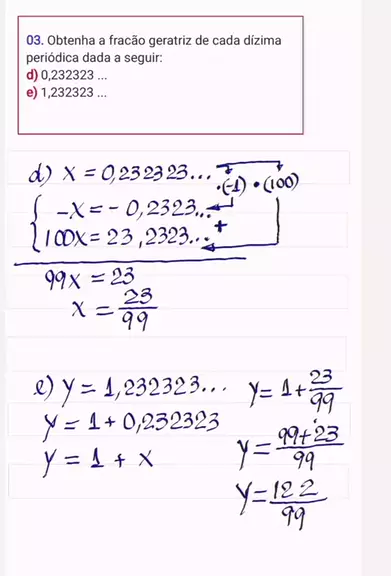 03. Obtenha a fracão geratriz de cada dízima
periódica dada a seguir:
d) 0,232323 ...
e) 1,232323 ...
d) x = 0,232323... •(-1) •(100)
-x = -0,2323...
100x = 23,2323... +
99x = 23
x = 23/99
e) y = 1,232323...
y = 1 + 0,232323
y = 1 + x
y = 1 + 23/99
y = 99+23/99
y = 122/99